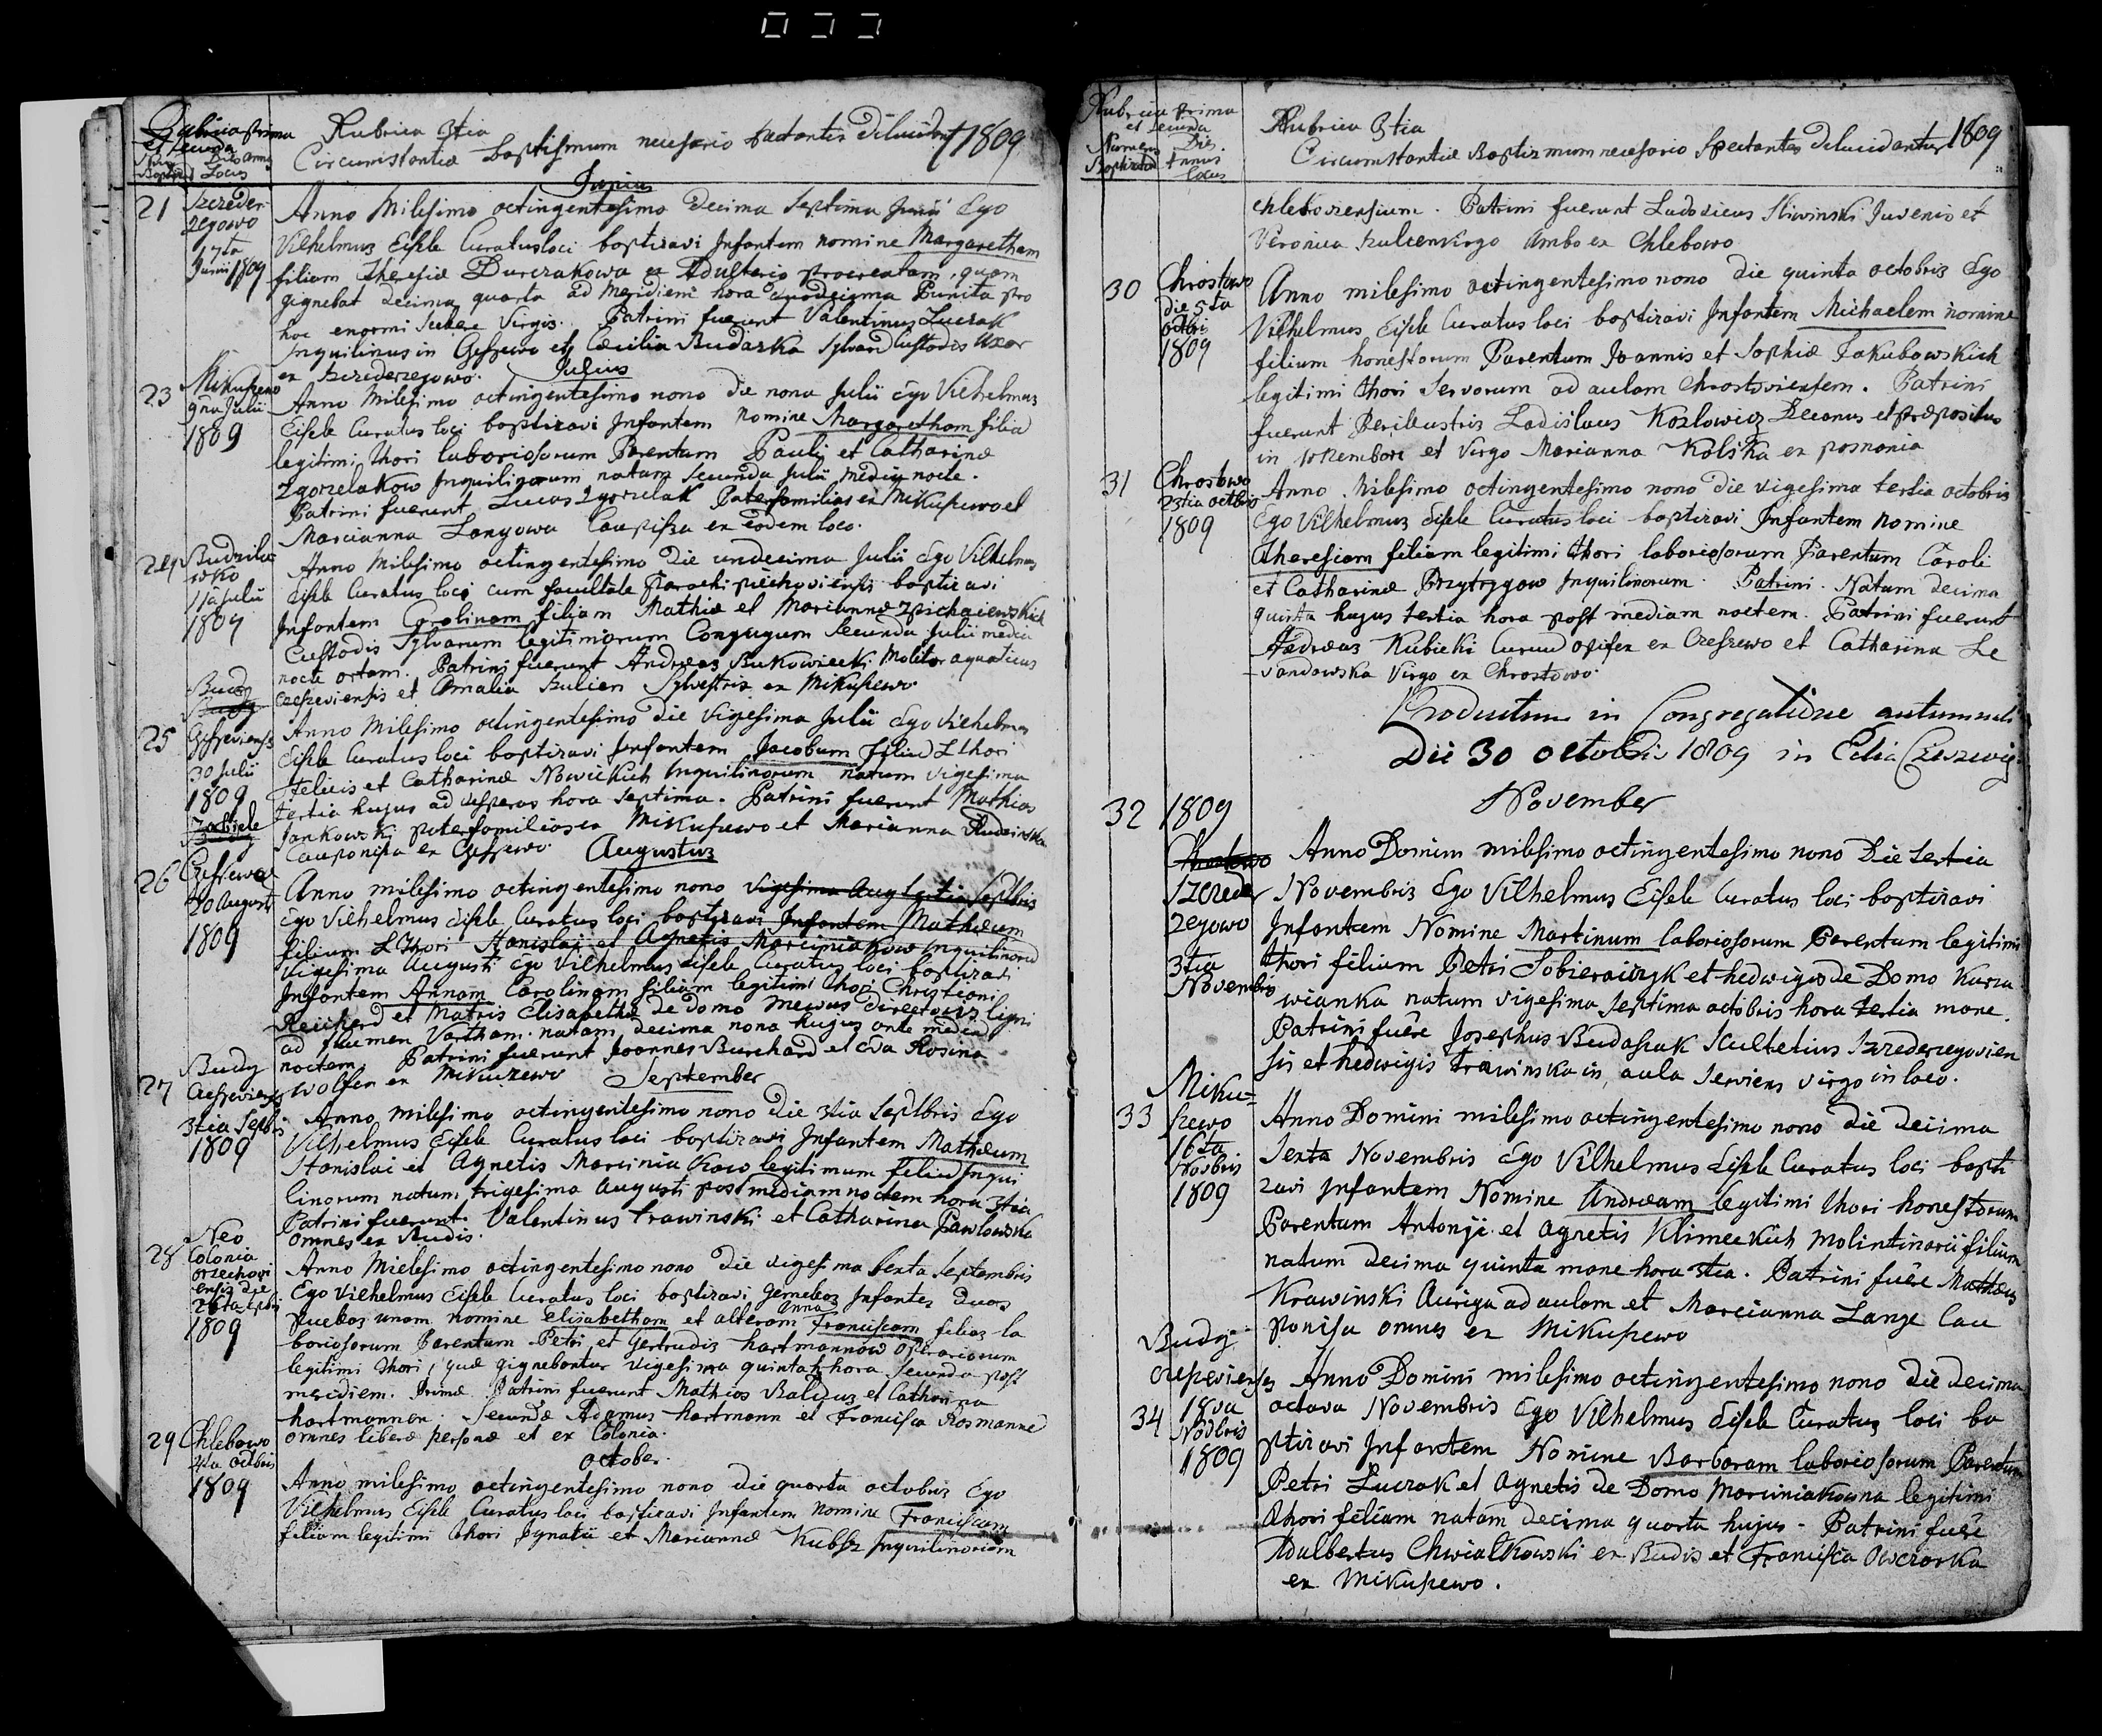 033
Rubrica prima et secunda
Rubrica 3tia
Circumstantiæ baptismum necesario dilucidant 1809
Locus
Junius
21
Szczeder
zegowo
17ta
Junii 1809
Anno Milesimo octingentesimo decima septima Junii Ego
Vilhelmus Eisele Curatus loci baptizavi Infantem nomine Margaretham
filiam Theresiæ Durczakowa ex Adulterio procreatam, quam
gignebat decima quarta ad Meridiem hora Punita pro
hoc enormi scelere Virgis. Patrini fuerunt Valentinus Luczak
Inquilinus in et Cæcilia Budaszka Sylvarũ Custodis Uxor
ex Szczederzegowo.
Julius
23
Mikuszewo
9na Julii
1809
Anno Milesimo octingentesimo nono die nona Julii Ego Vilhelmus
Eisele Curatus loci baptizavi Infantem nomine Margaretham filiã
legitimi thori laboriosorum Parentum Pauli et Catharinæ
Zgorzelakow Inquilinorum natam secunda Julii mediũ nocte.
Patrini fuerunt Lucas Zgorzelak Paterfamilias ex Mikuszewo et
Marcianna Langowa ex eodem loco.
24
Budzilo
wko
11a Julii
1809
Anno Milesimo octingentesimo die undecima Julii Ego Vilhelmus
Eisele Curatus loci cum facultate Parochi baptizavi
Infantem Carolinam filiam Mathiæ et Mariannæ
Custodis Sylvarum legitimorum Conjugum secunda Julii media
nocte ortam. Patrini fuerunt Andreas Bukowiecki Molitor aquaticus
et Amalia Szulcen Sylvestris ex Mikuszewo.
25
Budy
30 Julii
1809
Anno Milesimo octingentesimo die Vigesima Julii Ego Vilhelmus
Eisele Curatus loci baptizavi Infantem Jacobum filiũ L thori
Felicis et Catharinæ Nowickich Inquilinorum natum vigesima
tertia hujus ad vesperas hora septima. Patrini fuerunt Mathias
Jankowski paterfamilias ex Mikuszewo et Marianna
ex
Augustus
26
20 Augusti
1809
Anno milesimo octingentesimo nono vigesima Aug tertia Septbris
Ego Vilhelmus Eisele Curatus loci baptizavi Infantem Mathæum
filium L Thori Stanislai et Agnetis Marciniakow Inquilinorũ
Vigesima Augusti Ego Vilhelmus Eisele Curatus loci baptizavi
Infantem Annam Carolinam filiam legitimi thori Christiani
et Matris Elisabethæ de domo Mewus directoris ligni
ad flumen Vartham. natam decima nona hujus ante mediã
noctem. Patrini fuerunt Joannes Burchard et Eva Rosina
Wolfen ex Mikuszewo
September
27
Budy
3tia Septbris
1809
Anno milesimo octingentesimo nono die 3tia Septbris Ego
Vilhelmus Eisele Curatus loci baptizavi Infantem Mathæum
Stanislai et Agnetis Marciniakow legitimum filiũ Inqui
linorum natum trigesima Augusti post mediam noctem hora 3tia
Patrini fuerunt Valentinus Trawinski et Catharina Pawlowska
omnes ex Budis.
28
Neo
Colonia
orzechovi
ensis die
1809
Anno Mielesimo octingentesimo nono die vigesima sexta Septembris
Ego Vilhelmus Eisele Curatus loci baptizavi gemellos Infantes duos
unam nomine Elisabetham et alteram Anna Franciscam filias la
boriosorum Parentum Petri et Gertrudis hartmannow
legitimi thori, quæ gignebantur vigesima quinta hora secunda post
meridiem. Primæ Patrini fuerunt Mathias et Catharina
hartmannen. Secundæ Adamus hartmann et Francisca Rosmanne
omnes liberæ personæ et ex Colonia.
October.
29
Chlebowo
4ta Octbris
1809
Anno milesimo octingentesimo nono die quarta octobris Ego
Vilhelmus Eisele Curatus loci baptizavi Infantem nomine Franciscam
filiam legitimi thori Ignatii et Mariannæ Inquilinorum
Rubrica prima
et secunda
Numerus Die.
Baptizatorum Annus
Locus
Rubrica 3tia
Circumstantiæ Baptizmum necesario Spectantes delucidantur 1809
chlebowiensium. Patrini fuerunt Ludovicus Sliwinski Juvenis et
Veronica Szulcen virgo Ambo ex Chlebowo
30
Chrostowo
die 5ta
octbr
1809
Anno milesimo octingentesimo nono die quinta octobris Ego
Vilhelmus Eisele Curatus loci baptizavi Infantem Michaelem nomine
filium honestorum Parentum Joannis et Sophiæ Jakubowskich
legitimi thori Servorum ad aulam Chrostoviensem. Patrini
fuerunt Perillustris Ladislaus Kozlowicz Decanus et præpositus
in et Virgo Marianna Kolska ex posnania
31
Chrostowo
23tia octbris
1809
Anno Milesimo octingentesimo nono die vigesima tertia octobris
Ego Vilhelmus Eisele Curatus loci baptizavi Infantem nomine
Theresiam filiam legitimi thori laboriosorum Parentum Caroli
et Catharinæ Inquilinorum. Patrini. Natam decima
quinta hujus tertia hora post mediam noctem. Patrini fuerunt
Andreas Kubicki Curruũ opifex ex Czeszewo et Catharina Le
vandowska Virgo ex Chrostowo.
Productum in Congregatione autumnali
Die 30 octobris 1809 in Ecclia
November
32
1809
Chrostowo
Szczeder
zegowo
3tia
Novembris
Anno Domini milesimo octingentesimo nono Die tertia
Novembris Ego Vilhelmus Eisele Curatus loci baptizavi
Infantem Nomine Martinum laboriosorum Parentum legitimi
thori filium Petri Sobieraiczyk et hedwigis de Domo Kurza
wianka natum vigesima septima octobris hora tertia mane.
Patrini fuêre Josephus Budaszak Scultetius Szczederzegovien
sis et hedwigis Trawinska in aula serviens virgo in loco.
33
Miku=
szewo
16ta
Novbris
1809
Anno Domini milesimo octingentesimo nono die decima
Sexta Novembris Ego Vilhelmus Eisele Curatus loci bapti
zavi Infantem Nomine Andream legitimi thori honestorum
Parentum Antonji et Agnetis Klimeckich filium
natum decima quinta mane hora. Patrini fuêre Mathæus
Krawinski Auriga ad aulam et Marcianna Lange Cau
ponisa omnes ex Mikuszewo
34
Budy
18va
Novbris
1809
Anno Domini milesimo octingentesimo nono die decima
octava Novembris Ego Vilhelmus Eisele Curatus loci ba
ptizavi Infantem Nomine Barbaram laboriosorum Parentum
Petri Luczak et Agnetis de Domo Marciniakowna legitimi
thori filiam natam decima quarta hujus - Patrini fuêre
Adalbertus Chwialkowski ex Budis et Francisca Owczarka
ex Mikuszewo.